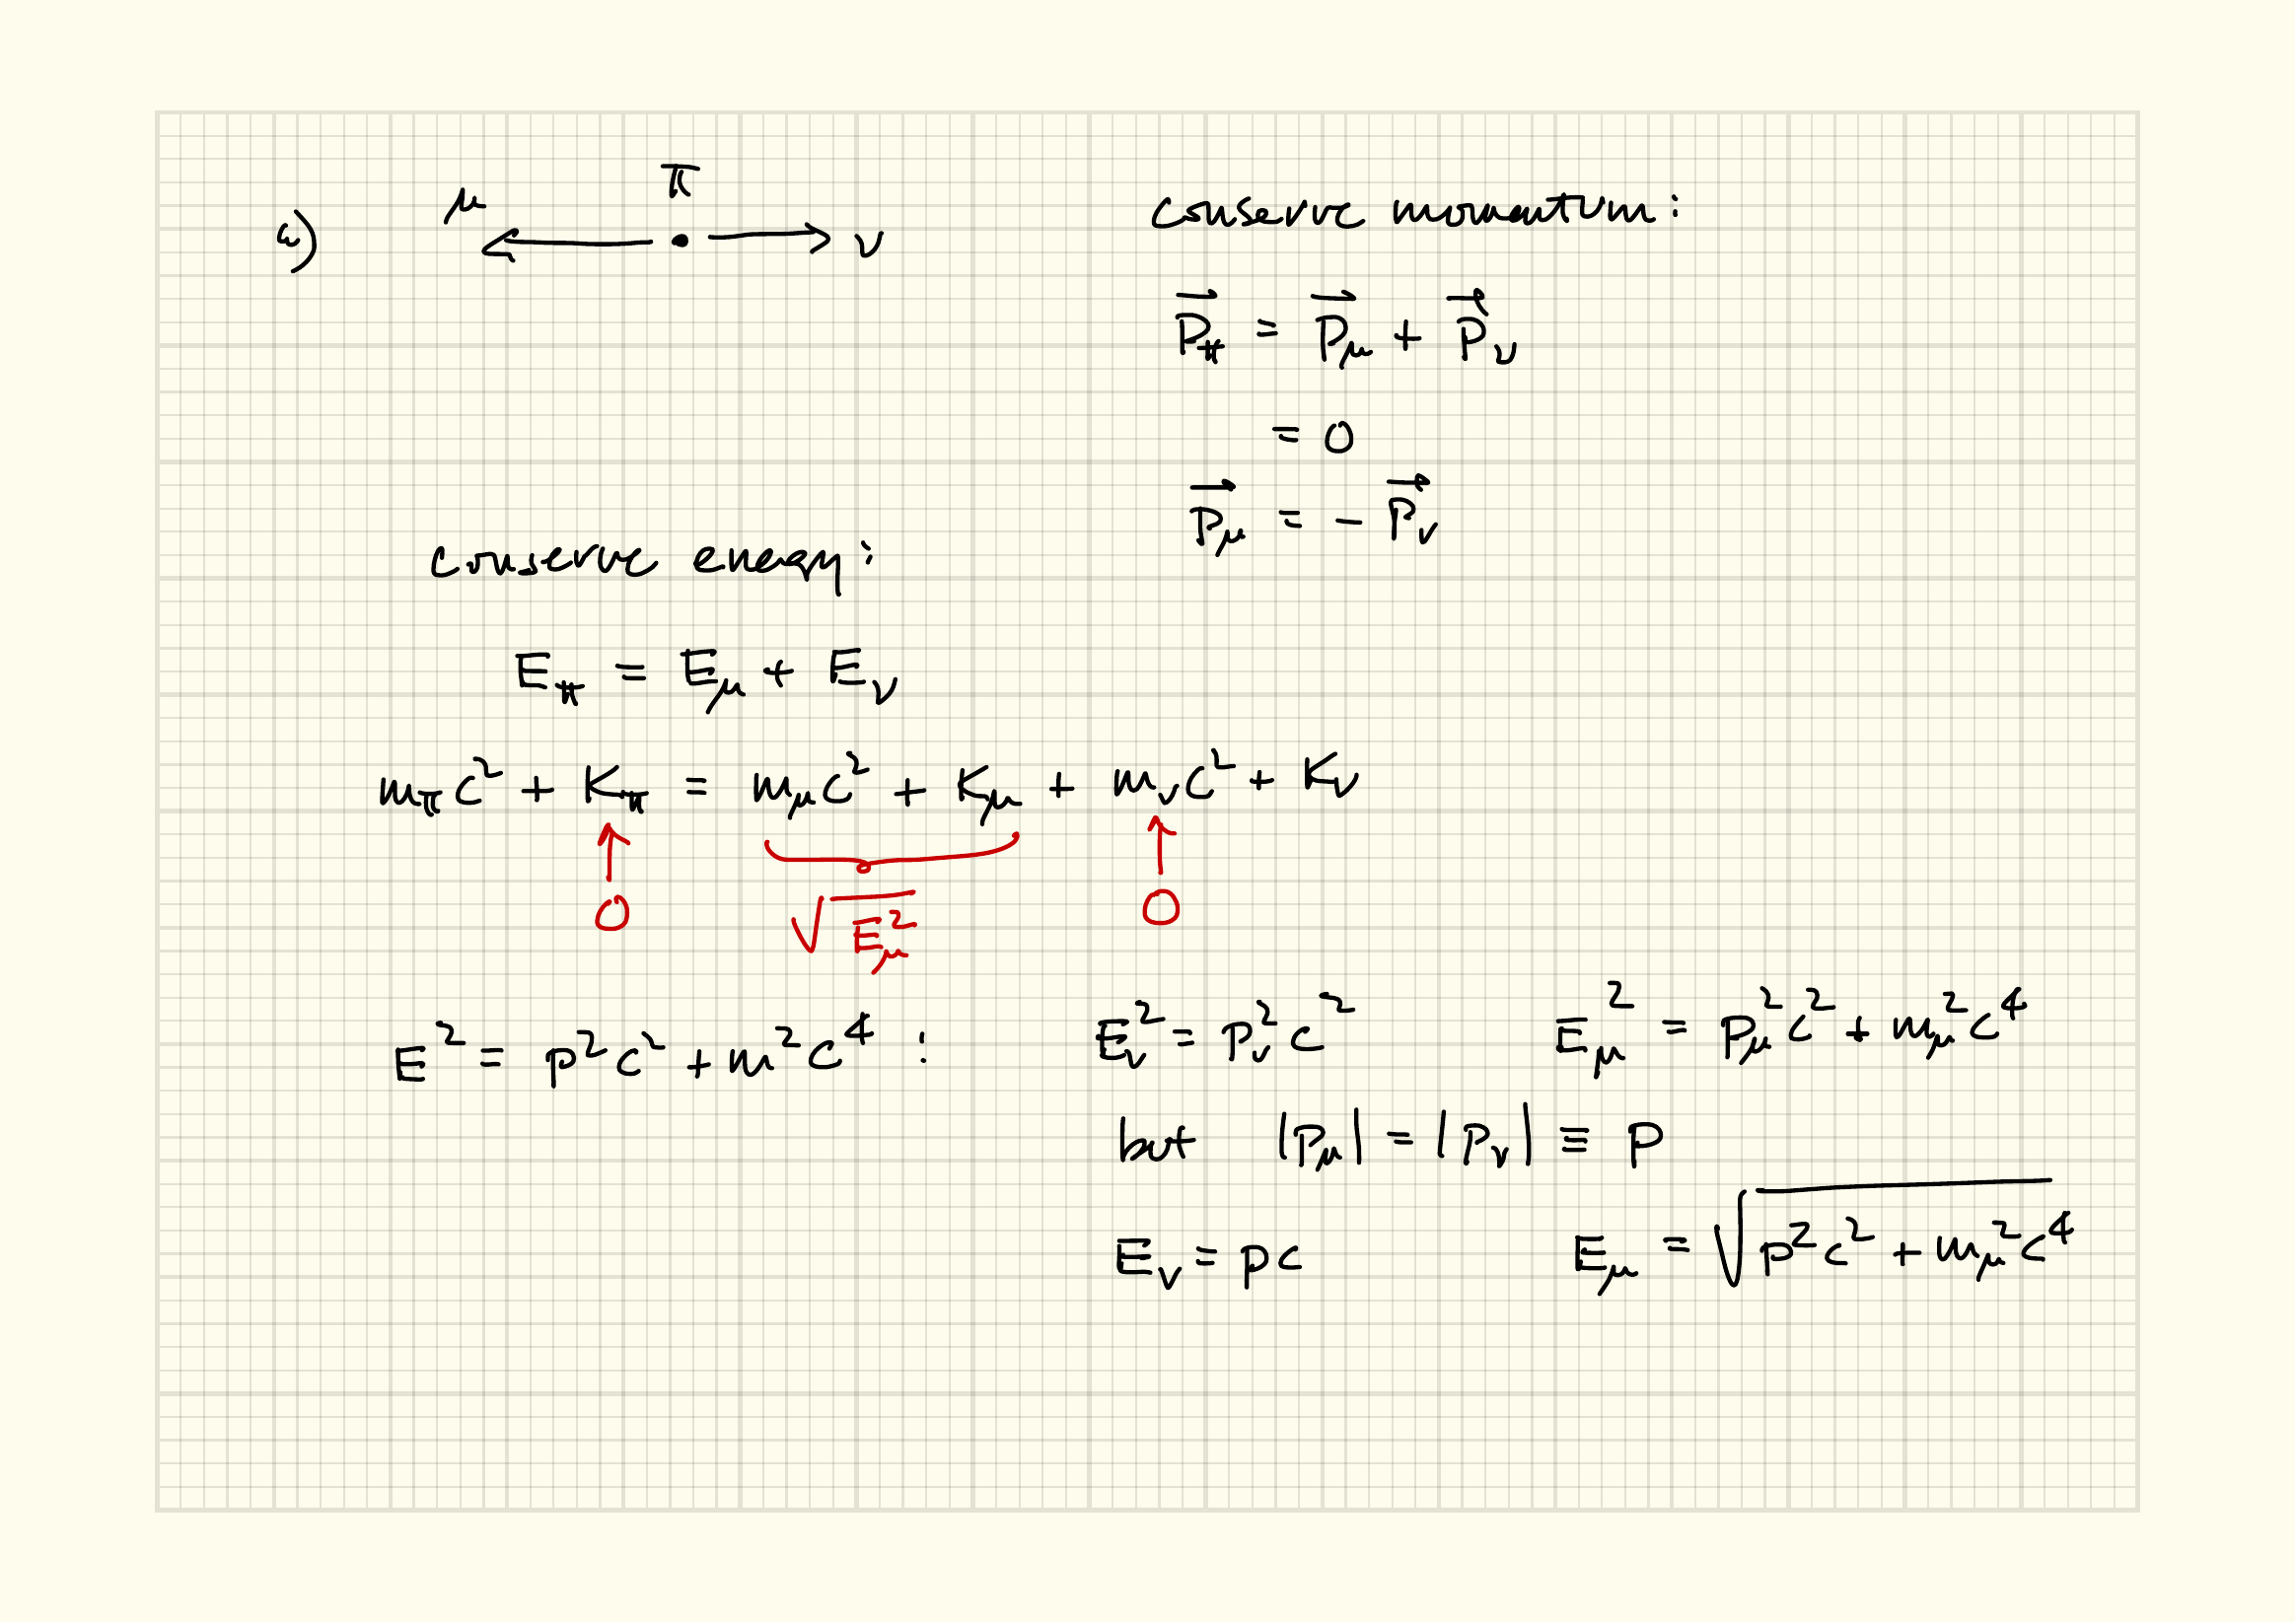 a) μ π ν
conserve momentum:
p⃗_π = p⃗_μ + p⃗_ν
= 0
p⃗_μ = - p⃗_ν
conserve energy:
E_π = E_μ + E_ν
m_π c² + K_π = m_μ c² + K_μ + m_ν c² + K_ν
0 √(E_μ²) 0
E² = p²c² + m²c⁴ : E_ν² = p_ν² c² E_μ² = p_μ² c² + m_μ² c⁴
but |p_μ| = |p_ν| ≡ p
E_ν = pc E_μ = √(p²c² + m_μ² c⁴)